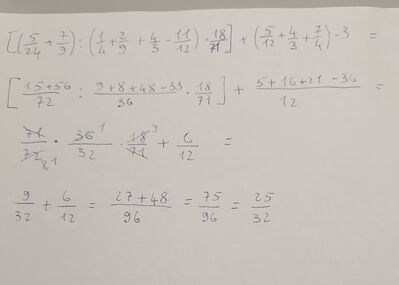 [(5/24 + 7/9) : (1/4 + 2/9 + 4/3 - 11/12) · 18/71] + (5/12 + 4/3 + 7/4) - 3 =
[15+56/72 : 9+8+48-33/36 · 18/71] + 5+16+21-36/12 =
71/72 2 1 · 36 1/32 · 18 9/71 + 6/12 =
9/32 + 6/12 = 27+48/96 = 75/96 = 25/32